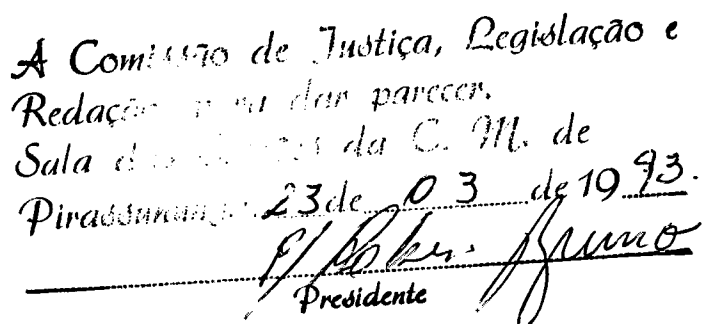 A Comissão de Justiça, Legislação e
Redação para dar parecer.
Sala das Sessões da C. M. de
Pirassununga, 23 de 03 de 19 93.
Bruno
Presidente